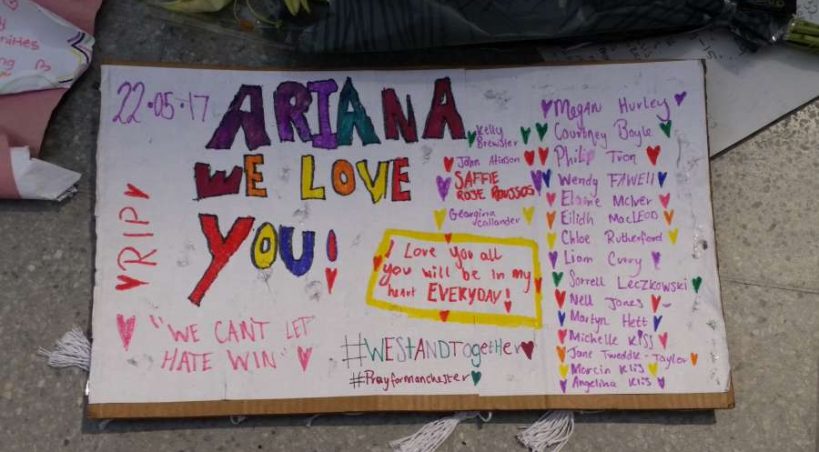 22·05·17
ARIANA
WE LOVE
YOU!
RIP
"WE CANT LET
HATE WIN"
Kelly
Brewster
John Atkinson
SAFFIE
ROSE ROUSSOS
Georgina
Callander
I Love you all
you will be in my
heart EVERYDAY!
#WESTANDTogetHer
#Prayformanchester
Megan Hurley
Courtney Boyle
Philip Tron
Wendy FAWEll
Elaine McIver
Eilidh MacLEOD
Chloe Rutherford
Liam Curry
Sorrell Leczkowski
Nell Jones
Martyn Hett
Michelle KISS
Jane Tweddle-Taylor
Marcin Klis
Angelina Klis